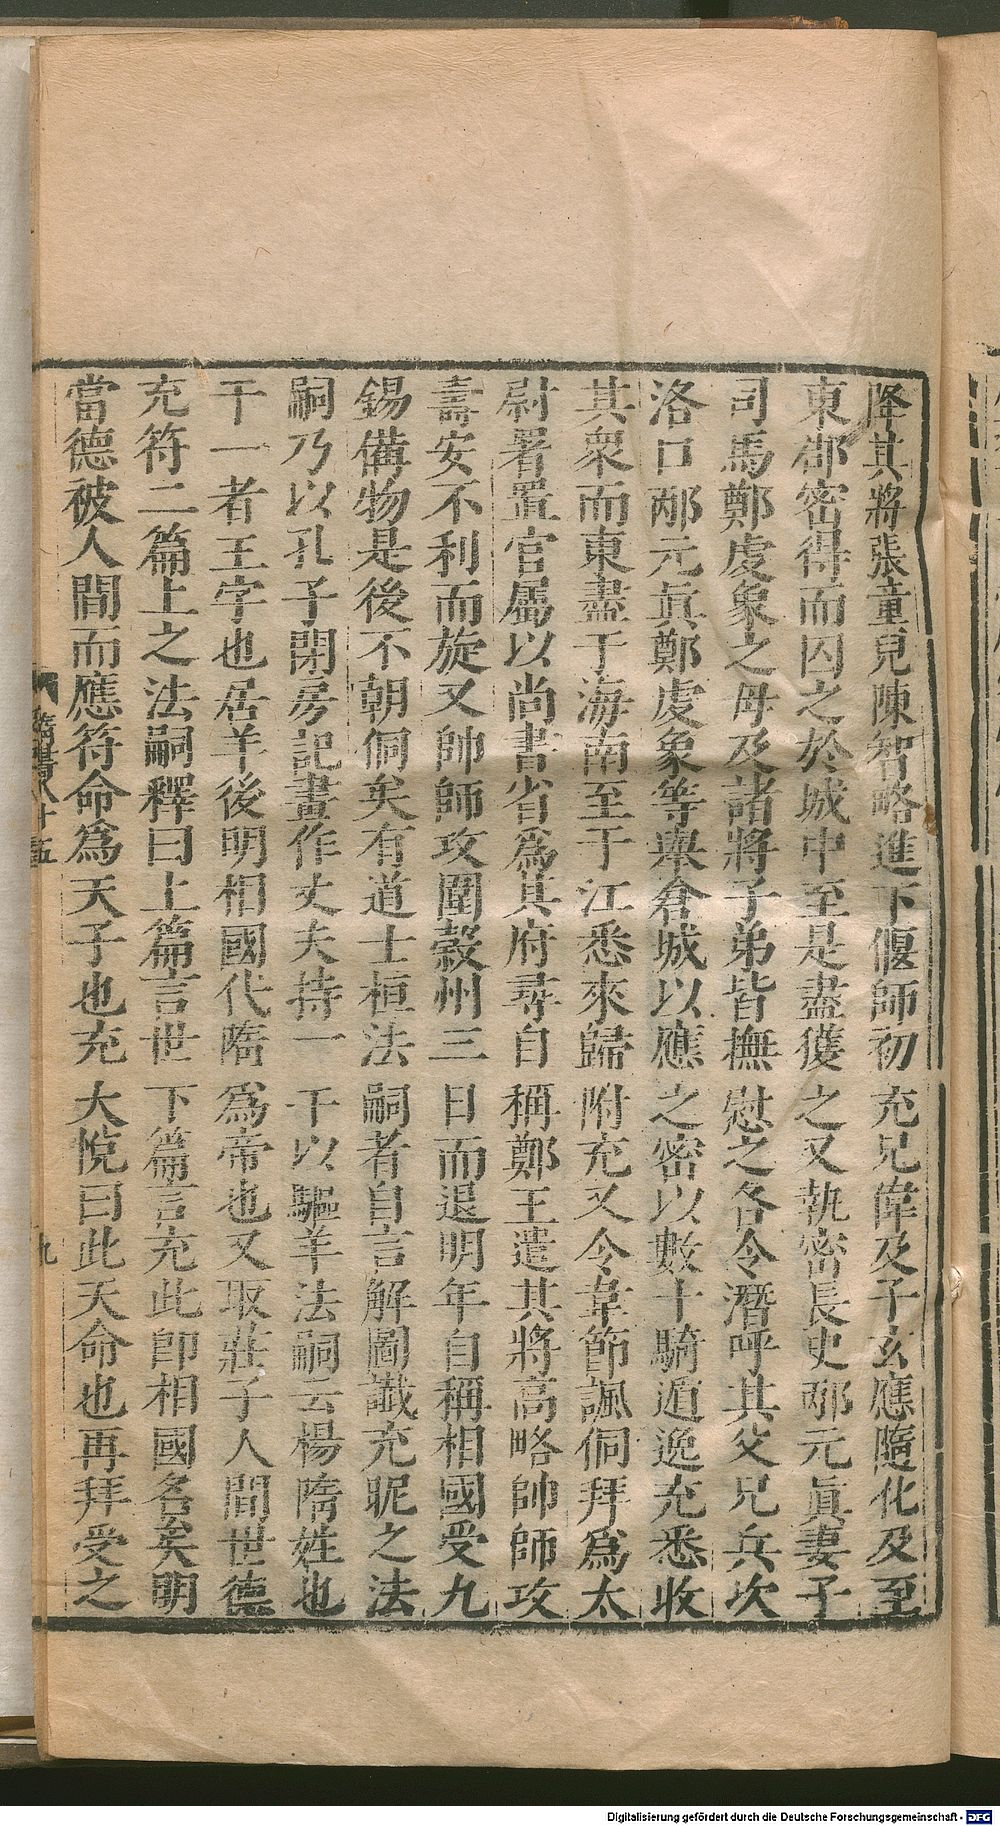 降其將張童兒陳智略進下偃師初充兄偉及子玄應隨化及至
東郡密得而囚之於城中至是盡獲之又執密長史邴元眞妻子
司馬鄭虔象之母及諸將子弟皆撫慰之各令潛呼其父兄兵次
洛口邴元眞鄭虔象等舉倉城以應之密以數十騎遁逸充悉收
其衆而東盡于海南至于江悉來歸附充又令韋節諷侗拜爲太
尉署置官屬以尚書省爲其府尋自稱鄭王遣其將高略帥師攻
壽安不利而旋又帥師攻圍穀州三日而退明年自稱相國受九
錫備物是後不朝侗矣有道士桓法嗣者自言解圖讖充昵之法
嗣乃以孔子閉房記畫作丈夫持一干以驅羊法嗣云楊隋姓也
干一者王字也居羊後明相國代隋爲帝也又取莊子人間世德
充符二篇上之法嗣釋曰上篇言世下篇言充此即相國名矣明
當德被人間而應符命爲天子也充大悅曰此天命也再拜受之
隋書八十五
九
Digitalisierung gefördert durch die Deutsche Forschungsgemeinschaft - DFG